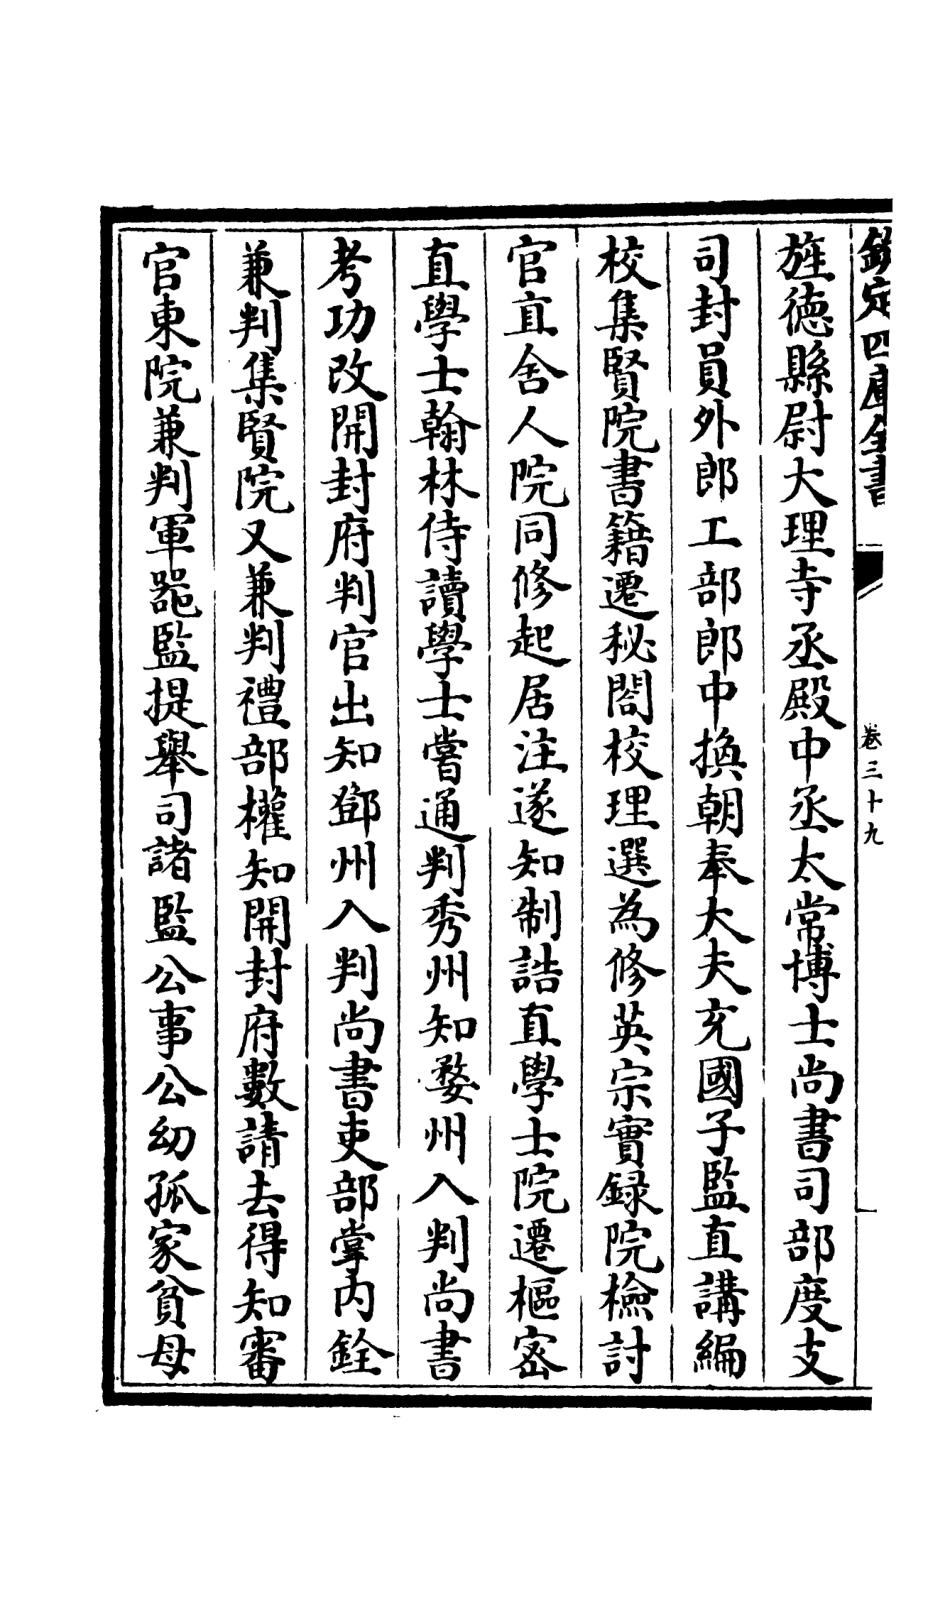 欽定四庫全書
卷三十九
旌德縣尉大理寺丞殿中丞太常博士尚書司部度支
司封員外郎工部郎中換朝奉大夫充國子監直講編
校集賢院書籍遷秘閣校理選為修英宗實録院檢討
官直舍人院同修起居注遂知制誥直學士院遷樞密
直學士翰林侍讀學士嘗通判秀州知婺州入判尚書
考功改開封府判官出知鄧州入判尚書吏部掌内銓
兼判集賢院又兼判禮部權知開封府數請去得知審
官東院兼判軍器監提舉司諸監公事公幼孤家貧母